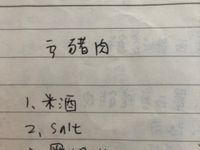 豬肉
1、米酒
2、salt
3、